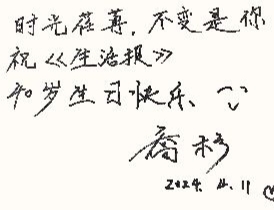 时光荏苒,不变是你
祝《生活报》
40岁生日快乐
乔杉
2024.4.11